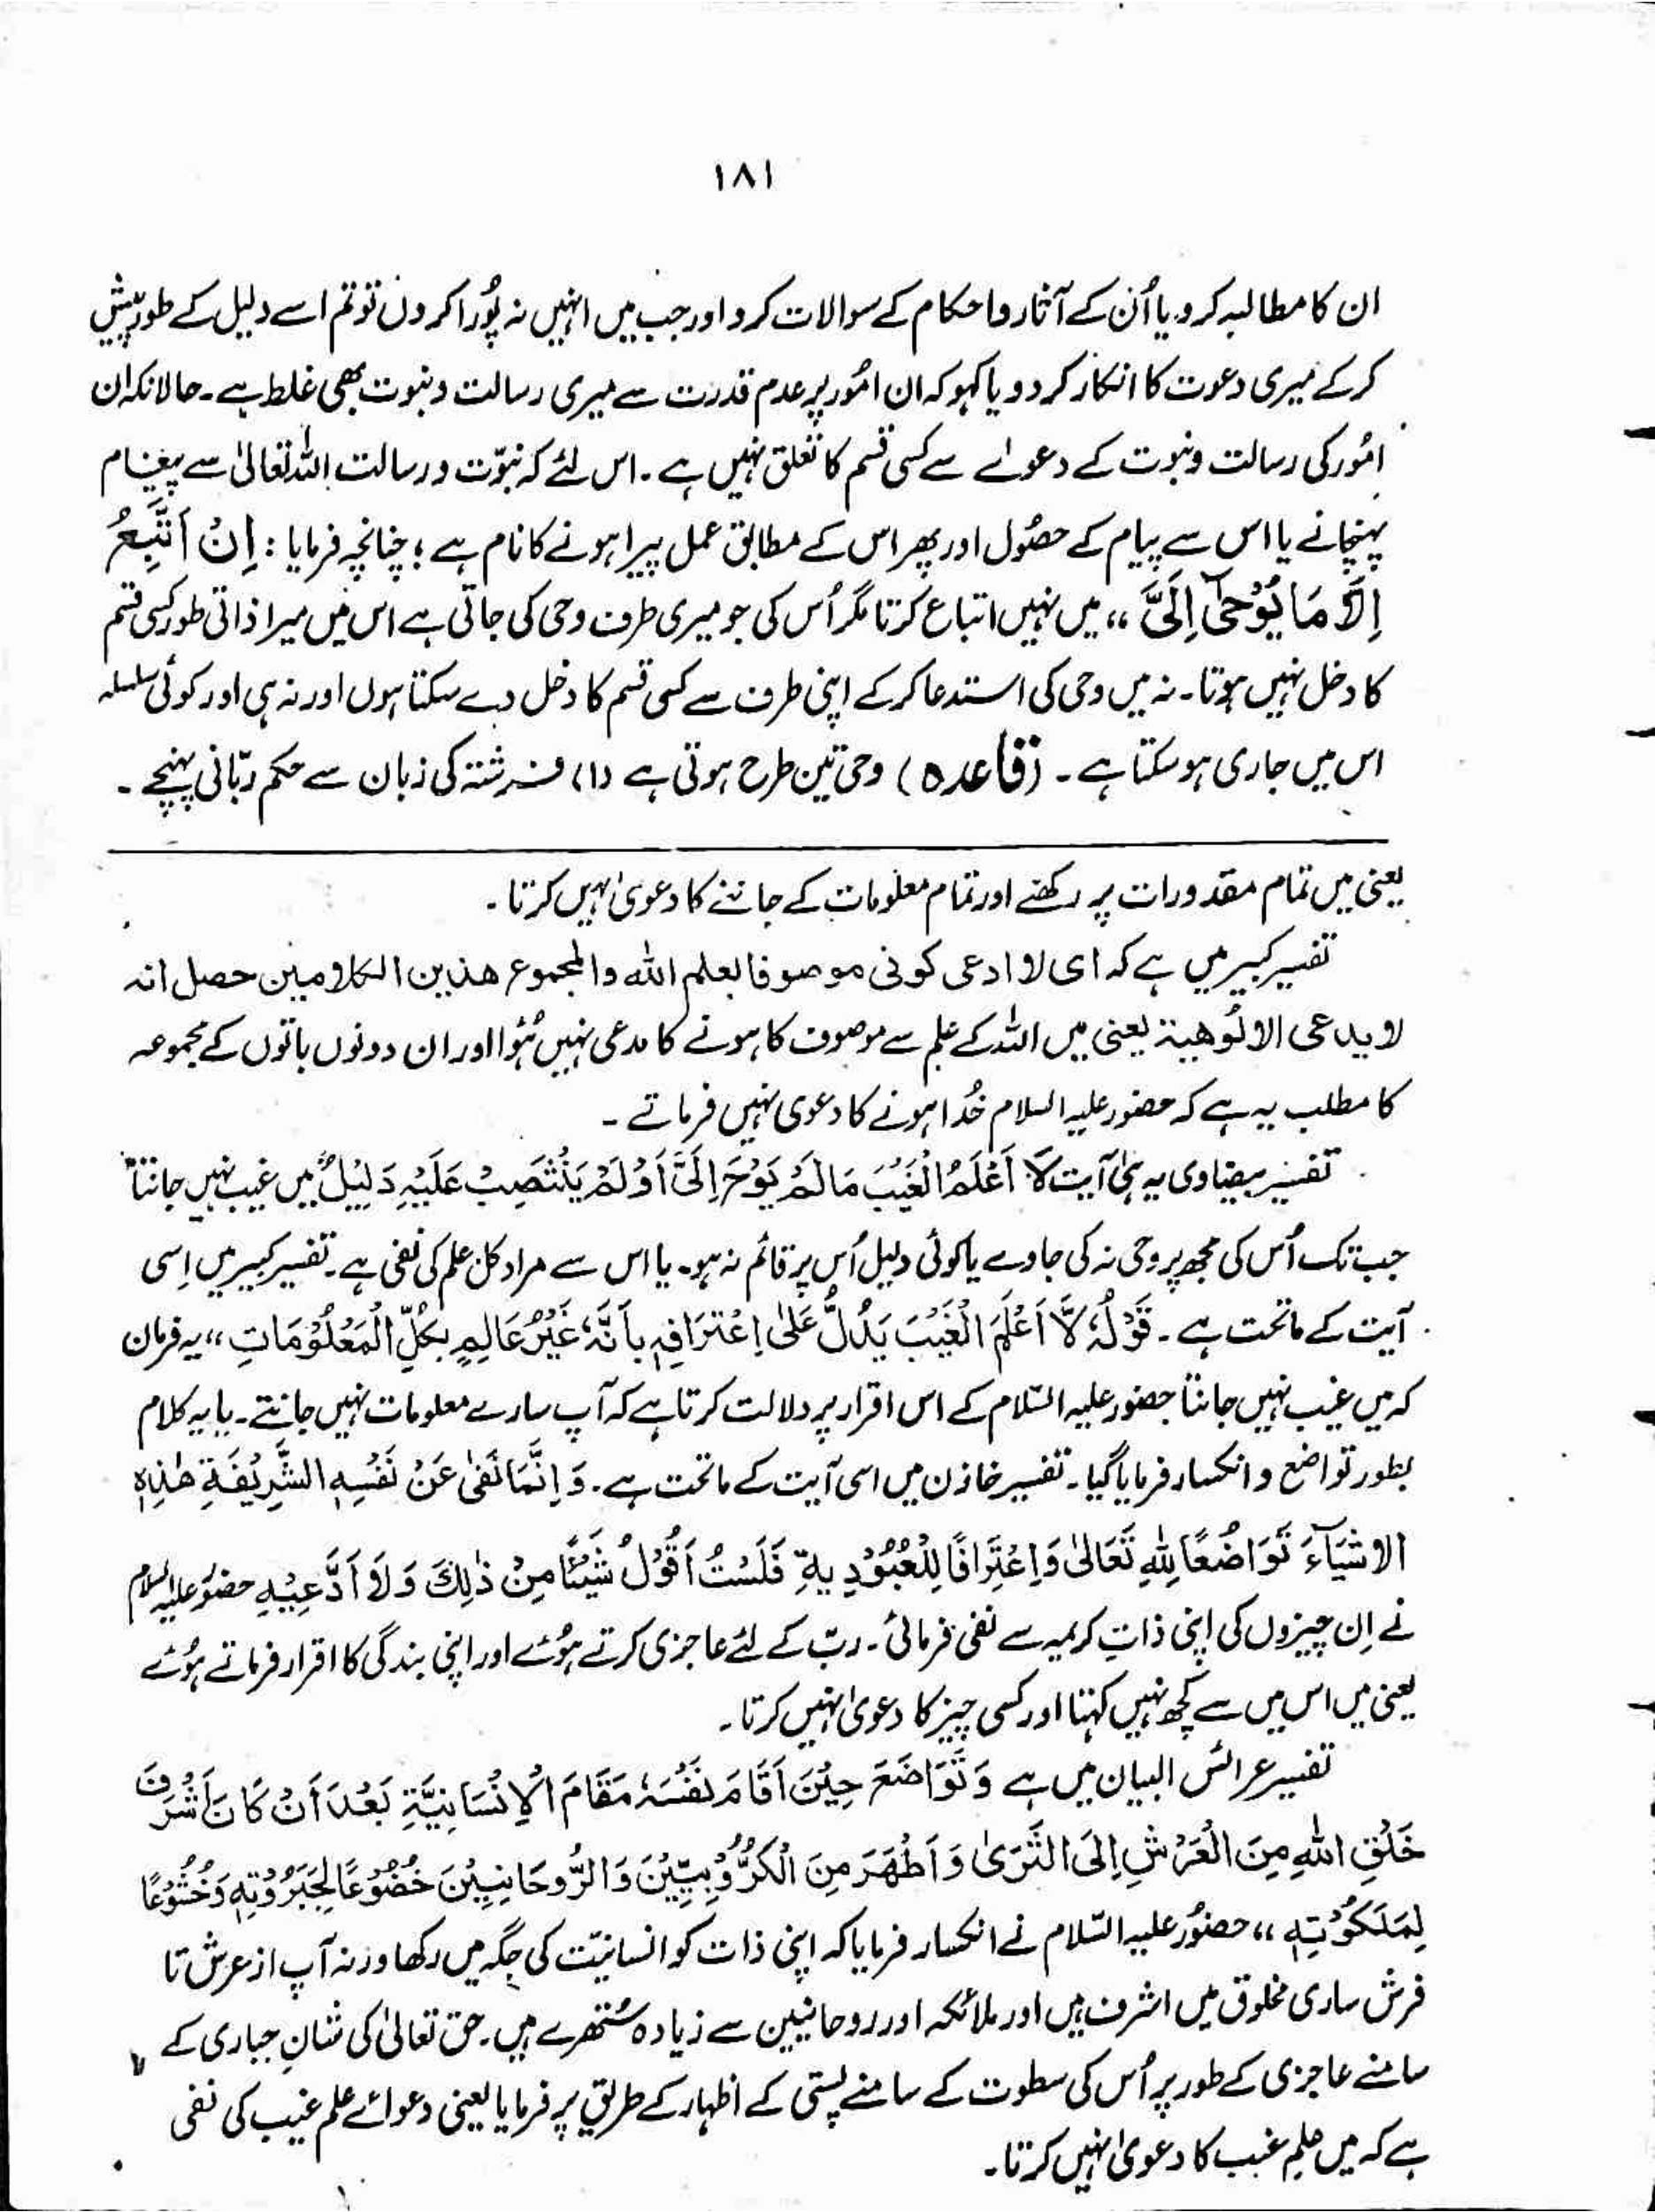 ۱۸۱
ان کا مطالبہ کرو یا اُن کے آثار و احکام کے سوالات کرو اور جب میں انہیں نہ پُورا کروں تو تم اسے دلیل کے طور پیش
کرکے میری دعوت کا انکار کر دو یا کہو کہ ان امُور پر عدم قدرت سے میری رسالت و نبوت بھی غلط ہے۔ حالانکہ ان
امُور کی رسالت و نبوت کے دعوٰے سے کسی قسم کا تعلق نہیں ہے۔ اس لئے کہ نبوّت و رسالت اللہ تعالیٰ سے پیغام
پہنچانے یا اس سے پیام کے حصُول اور پھر اس کے مطابق عمل پیرا ہونے کا نام ہے؛ چنانچہ فرمایا : اِنْ اَتَّبِعُ
اِلَّا مَا یُوْحیٰٓ اِلَیَّ ،، میں نہیں اتباع کرتا مگر اُس کی جو میری طرف وحی کی جاتی ہے اس میں میرا ذاتی طور کسی قسم
کا دخل نہیں ہوتا۔ نہ میں وحی کی استدعا کرکے اپنی طرف سے کسی قسم کا دخل دے سکتا ہوں اور نہ ہی اور کوئی سلسلہ
اس میں جاری ہو سکتا ہے۔ (قاعدہ) وحی تین طرح ہوتی ہے (۱) فرشتہ کی زبان سے حکم ربّانی پہنچے۔
یعنی میں تمام مقدورات پر رکھنے اور تمام معلومات کے جاننے کا دعویٰ نہیں کرتا۔
تفسیر کبیر میں ہے کہ ای لا ادعی کونی موصوفا بعلم اللہ والمجموع ھذین الکلامین حصل انہ
لا یدعی الالُوھیۃ یعنی میں اللہ کے علم سے موصوف کا ہونے کا مدعی نہیں ہُوا اور ان دونوں باتوں کے مجموعہ
کا مطلب یہ ہے کہ حضور علیہ السلام خُدا ہونے کا دعوی نہیں فرماتے۔
تفسیر بیضاوی یہ ہی آیت لَا اَعْلَمُ الْغَیْبَ مَا لَمْ یَوْحَ اِلَیَّ اَوْ لَمْ یَنْتَصِبْ عَلَیْہِ دَلِیْلٌ میں غیب نہیں جانتا
جب تک اُس کی مجھ پر وحی نہ کی جاوے یا کوئی دلیل اُس پر قائم نہ ہو۔ یا اس سے مراد کل علم کی نفی ہے۔ تفسیر کبیر میں اِسی
آیت کے ماتحت ہے۔ قَوْلُہٗ لَّا اَعْلَمَ الْغَیْبَ یَدُلُّ عَلیٰ اِعْتِرَافِہٖ بِاَنَّہٗ غَیْرُ عَالِمٍ بِکُلِّ الْمَعْلُوْمَاتِ ،، یہ فرمان
کہ میں غیب نہیں جانتا حضور علیہ السّلام کے اس اقرار پر دلالت کرتا ہے کہ آپ سارے معلومات نہیں جانتے۔ یا یہ کلام
بطور تواضع و انکسار فرمایا گیا۔ تفسیر خازن میں اسی آیت کے ماتحت ہے۔ وَ اِنَّمَا نَفیٰ عَنْ نَفْسِہِ الشَّرِیْفَۃِ ھٰذِہٖ
الاشْیَآءَ تَوَاضُعًا لِلّٰہِ تَعَالیٰ وَاِعْتِرَافًا لِلْعُبُوْدِیۃِّ فَلَسْتُ اَقُوْلُ شَیْئًا مِنْ ذٰلِکَ وَلَا اَدَّعِیْہِ حضور علیہ السلام
نے اِن چیزوں کی اپنی ذاتِ کریمہ سے نفی فرمائی۔ ربّ کے لئے عاجزی کرتے ہُوئے اور اپنی بندگی کا اقرار فرماتے ہُوئے
یعنی میں اس میں سے کچھ نہیں کہتا اور کسی چیز کا دعویٰ نہیں کرتا۔
تفسیر عرائس البیان میں ہے وَ تَوَاضَعَ حِیْنَ اَقَامَ نَفْسَہٗ مَقَامَ الْاِنْسَانِیَّۃِ بَعْدَ اَنْ کَانَ اَشْرَفَ
خَلْقِ اللّٰہِ مِنَ الْعَرْشِ اِلَی الثَّرَیٰ وَ اَطْھَرَ مِنَ الْکَرُّوْبِیِّیْنَ وَالرُّوحَانِیِیْنَ خُضُوْعًا لِجَبَرُوْتِہٖ وَخُشُوْعًا
لِمَلَکُوْتِہٖ ،، حضوُر علیہ السّلام نے انکسار فرمایا کہ اپنی ذات کو انسانیّت کی جگہ میں رکھا ورنہ آپ از عرش تا
فرش ساری مخلوق میں اشرف ہیں اور ملائکہ اور روحانیین سے زیادہ سُتھرے ہیں۔ حق تعالیٰ کی شانِ جباری کے
سامنے عاجزی کے طور پر اُس کی سطوت کے سامنے پستی کے اظہار کے طریق پر فرمایا یعنی دعوائے علم غیب کی نفی
ہے کہ میں علمِ غیب کا دعویٰ نہیں کرتا۔